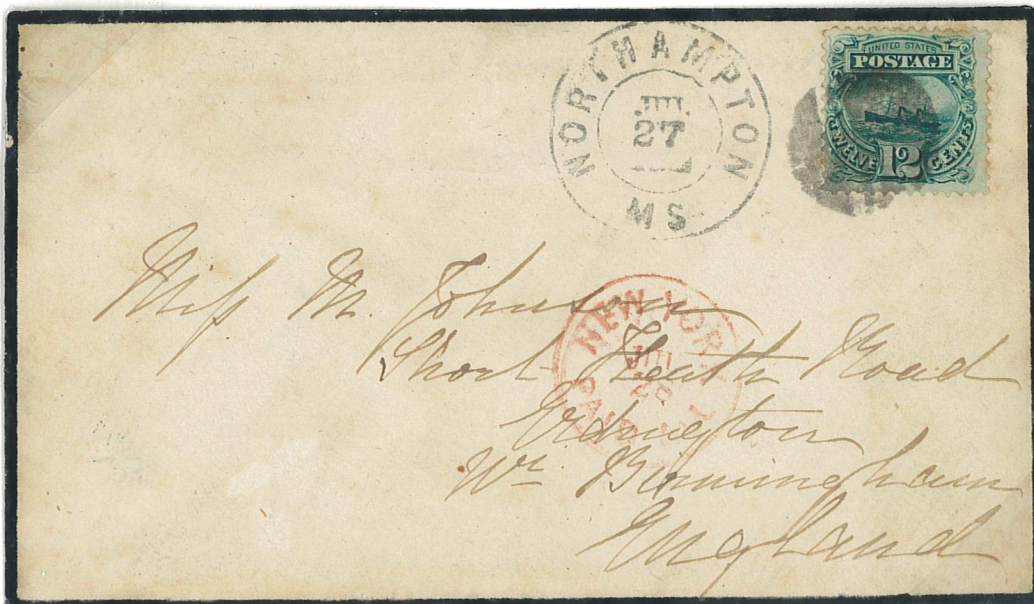 NORTHAMPTON
JUL
27
MS
UNITED STATES
POSTAGE
TWELVE 12 CENTS
NEW YOR
JUL
PAID
Miss M. Johnson
Short Heath Road
Erdington
Nr Birmingham
England